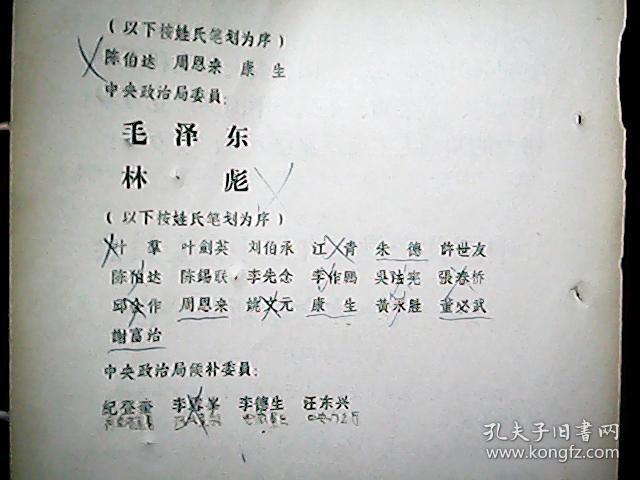 (以下按姓氏笔划为序)
陈伯达 周恩来 康 生
中央政治局委員:
毛 泽 东
林 彪
(以下按姓氏笔划为序)
叶 羣 叶劍英 刘伯承 江 青 朱 德 許世友
陈伯达 陈錫联 李先念 李作鵬 吳法宪 張春桥
邱会作 周恩来 姚文元 康 生 黃永胜 董必武
謝富治
中央政治局候补委員:
紀登奎 李雪峯 李德生 汪东兴
孔夫子旧书网
www.kongfz.com